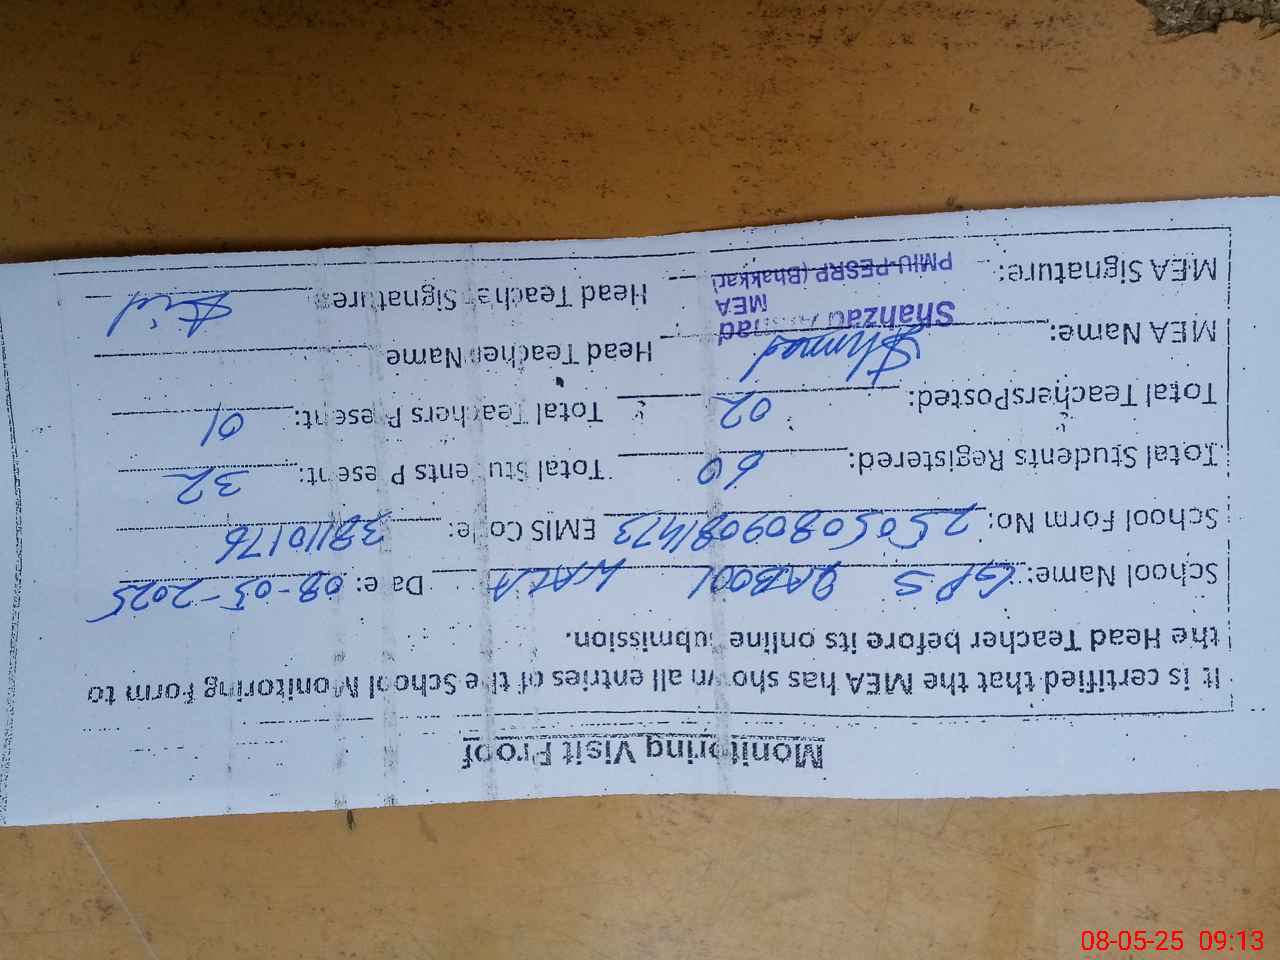 Monitoring Visit Proof
It is certified that the MEA has shown all entries of the School Monitoring Form to
the Head Teacher before its online submission.
School Name: GPS WALA Date: 08-05-2025
School Form No: 250508090981473 EMIS Code: 38110176
Total Students Registered: 60 Total Students Present: 32
Total Teachers Posted: 02 Total Teachers Present: 01
MEA Name: Shahzad Ahmad Head Teacher Name
MEA
MEA Signature: PMIU-PESRP (Bhakkar) Head Teacher Signature:
08-05-25 09:13